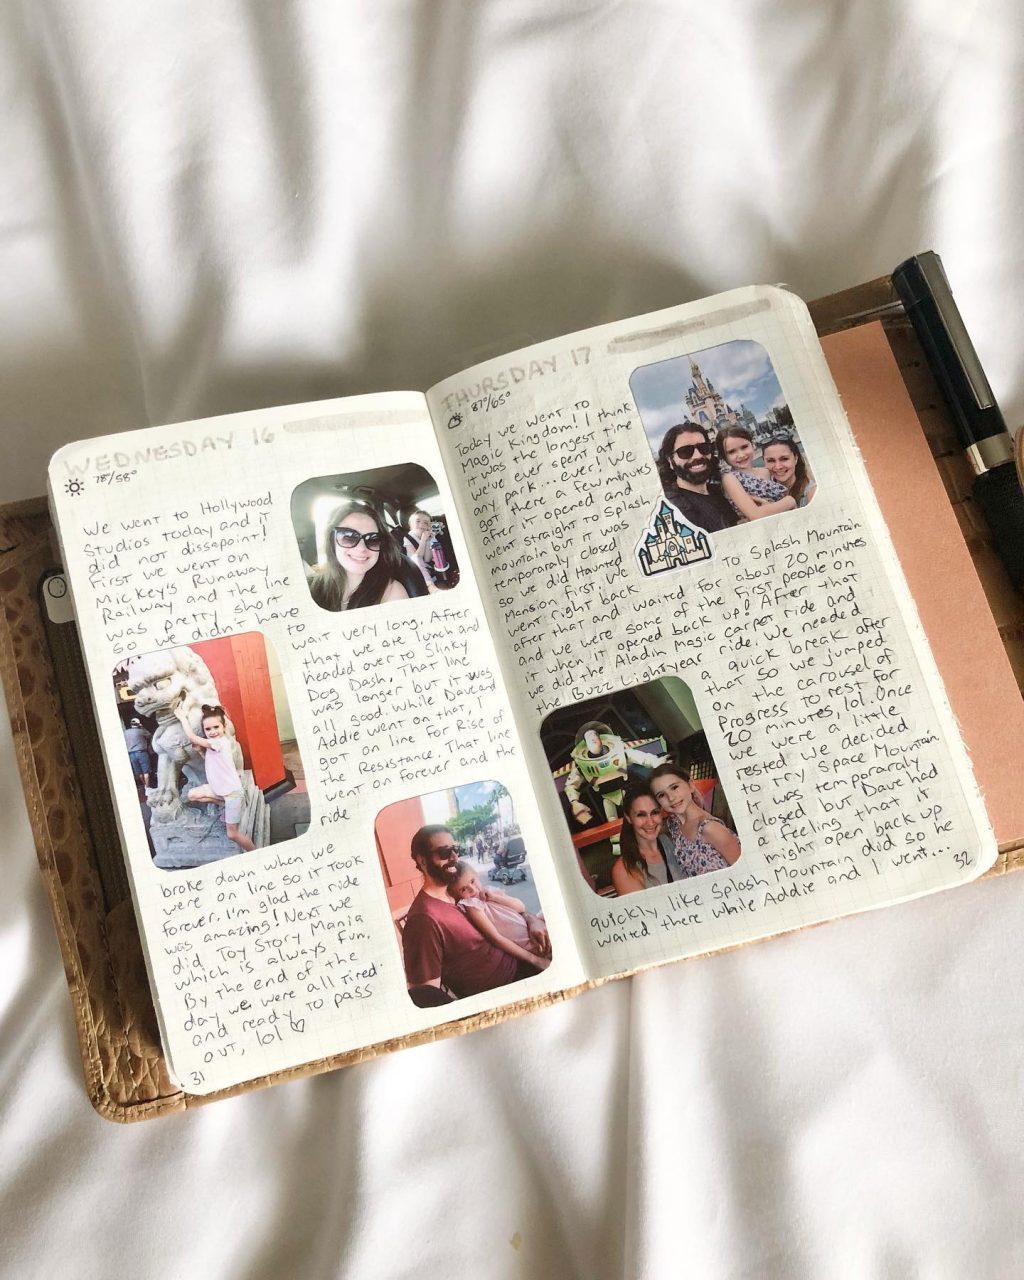 WEDNESDAY 16
78°/58°
We went to Hollywood
Studios today and it
did not dissapoint!
First we went on
Mickey's Runaway
Railway and the line
was pretty short
so we didn't have
to
wait very long. After
that we ate lunch and
headed over to Slinky
Dog Dash. That line
was longer but it was
all good. While Dave and
Addie went on that, I
got on line for Rise of
the Resistance. That line
went on forever and the
ride
broke down when we
were on line so it took
forever. I'm glad the ride
was amazing! Next we
did Toy Story Mania
which is always fun.
By the end of the
day we were all tired
and ready to pass
out, lol
31
THURSDAY 17
87°/65°
Today we went to
Magic Kingdom! I think
it was the longest time
we've ever spent at
any park...ever! We
got there a few minutes
after it opened and
went straight to Splash
mountain but it was
temporaraly closed
so we did Haunted
Mansion first. We
went right back to Splash Mountain
after that and waited for about 20 minutes
and we were some of the first people on
it when it opened back up! After that
we did the Aladin Magic carpet ride and
the Buzz Lightyear ride. We needed
a quick break after
that so we jumped
on the carousel of
Progress to rest for
20 minutes, lol. Once
we were a little
rested we decided
to try Space Mountain
It was temporaraly
closed but Dave had
a feeling that it
might open back up
quickly like Splash Mountain did so he
waited there while Addie and I went...
32